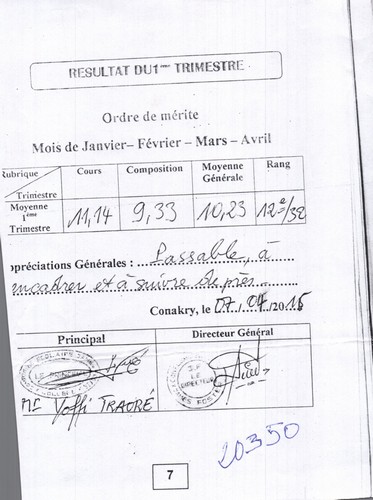 RESULTAT DU 1ème TRIMESTRE
Ordre de mérite
Mois de Janvier– Février – Mars – Avril
Rubrique Cours Composition Moyenne Générale Rang
Trimestre
Moyenne 1ème Trimestre 11,14 9,33 10,23 12e/32
ppréciations Générales : Passable, à
encadrer et à suivre de près
Conakry, le 07, 04, /2015
Principal Directeur Général
LE PRINCIPAL
LE DIRECTEUR
Mr Yoffi TRAORÉ
20350
7